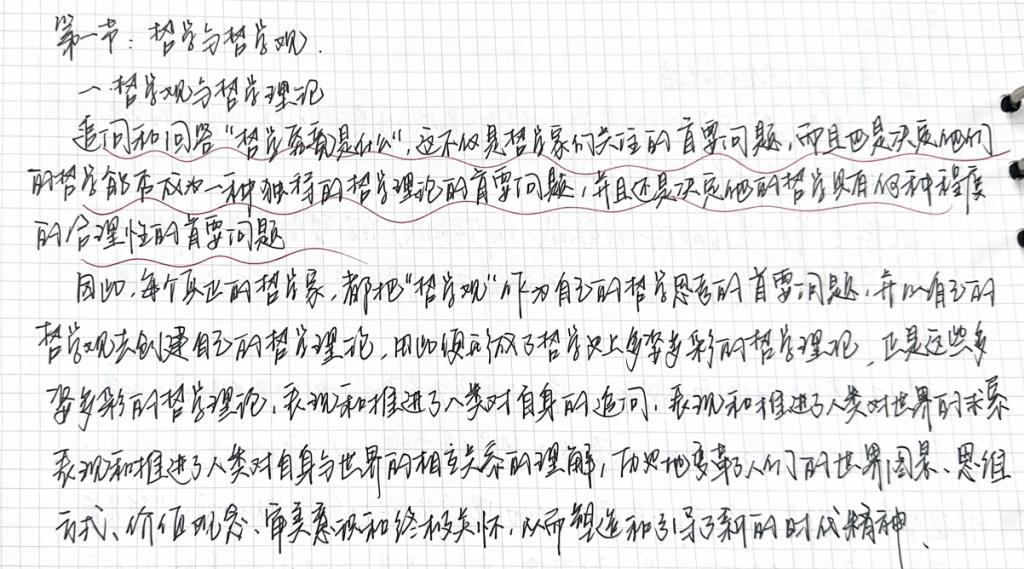 第一节：哲学与哲学观.
一、哲学观与哲学理论
追问和回答“哲学究竟是什么”,这不仅是哲学家们关注的首要问题,而且也是决定他们
的哲学能否成为一种独特的哲学理论的首要问题,并且还是决定他的哲学具有何种程度
的合理性的首要问题
因此,每个真正的哲学家,都把“哲学观”作为自己的哲学思考的首要问题,并以自己的
哲学观去创建自己的哲学理论,因此便形成了哲学史上多姿多彩的哲学理论,正是这些多
姿多彩的哲学理论,表现和推进了人类对自身的追问,表现和推进了人类对世界的求索
表现和推进了人类对自身与世界的相互关系的理解,历史地变革了人们的世界图景、思维
方式、价值观念、审美意识和终极关怀,从而塑造和引导了新的时代精神、